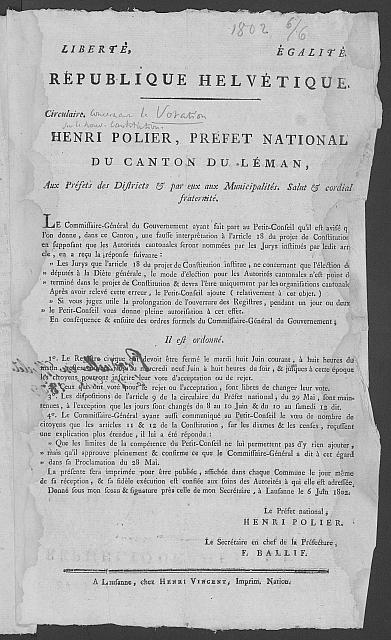 1802 6/6
LIBERTÉ, ÉGALITÉ.
RÉPUBLIQUE HELVÉTIQUE.
Circulaire. concernant la Votation
HENRI POLIER, PRÉFET NATIONAL
DU CANTON DU LÉMAN,
Aux Préfets des Districts & par eux aux Municipalités. Salut & cordial
fraternité.
LE Commissaire-Général du Gouvernement ayant fait part au Petit-Conseil qu'il est avisé q
l'on donne, dans ce Canton, une fausse interprétation à l'article 18 du projet de Constitution
en supposant que les Autorités cantonales seront nommées par les Jurys institués par ledit arti
cle, en a reçu la réponse suivante :
» Les Jurys que l'article 18 du projet de Constitution institue, ne concernant que l'élection de
» députés à la Diète générale, le mode d'élection pour les Autorités cantonales n'est point d
» terminé dans le projet de Constitution & devra l'être uniquement par les organisations cantonale
Après avoir relevé cette erreur, le Petit-Conseil ajoute ( relativement à cet objet. )
» Si vous jugez utile la prolongation de l'ouverture des Registres, pendant un jour ou deux
» le Petit-Conseil vous donne pleine autorisation à cet effet.
En conséquence & ensuite des ordres formels du Commissaire-Général du Gouvernement ;
Il est ordonné.
1°. Le Registre civique qui devoit être fermé le mardi huit Juin courant, à huit heures du
matin, mercredi neuf Juin à huit heures de soir, & jusques à cette époque
les citoyens pourront inscrire leur vote d'acceptation ou de rejet.
2°. Ceux qui ont voté pour & rejet ou l'acceptation, sont libres de changer leur vote.
3°. Les dispositions de l'article 9 de la circulaire du Préfet national, du 29 Mai, sont main-
tenues, à l'exception que les jours sont changés du 8 au 10 Juin & du 10 au samedi 12 dit.
4°. Le Commissaire Général ayant aussi communiqué au Petit-Conseil le vœu de nombre de
citoyens que les articles 11 & 12 de la Constitution, sur les dixmes & les censes, reçussent
une explication plus étendue, il lui a été répondu :
» Que les limites de la compétence du Petit-Conseil ne lui permettent pas d'y rien ajouter,
» mais qu'il approuve pleinement & confirme ce que le Commissaire-Général a dit à cet égard
» dans sa Proclamation du 28 Mai.
La présente sera imprimée pour être publiée, affichée dans chaque Commune le jour même
de sa réception, & sa fidèle exécution est confiée aux soins des Autorités à qui elle est adressée,
Donné sous mon sceau & signature près celle de mon Secrétaire, à Lausanne le 6 Juin 1802.
Le Préfet national,
HENRI POLIER.
Le Secrétaire en chef de la Préfecture,
F. BALLIF.
A Lausanne, chez HENRI VINCENT, Imprim. Nation.